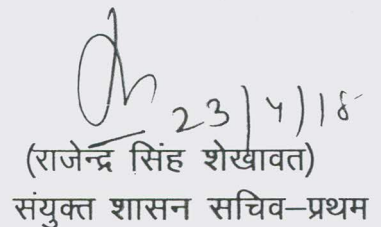 23/4/18
(राजेन्द्र सिंह शेखावत)
संयुक्त शासन सचिव–प्रथम